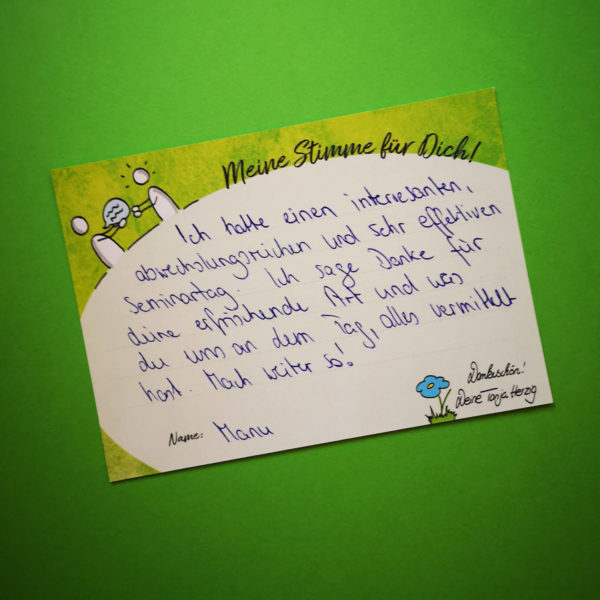 Meine Stimme für Dich!
Ich hatte einen interessanten,
abwechslungsreichen und sehr effektiven
Seminartag. Ich sage Danke für
deine erfrischende Art und was
du uns an dem Tag, alles vermittelt
hast. Mach weiter so!
Dankeschön!
Deine Tanja Herzig
Name: Manu